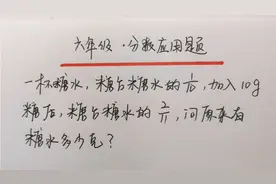 六年级·分数应用题
一杯糖水，糖占糖水的1/10，加入10g
糖后，糖占糖水的2/11，问原来有
糖水多少克？